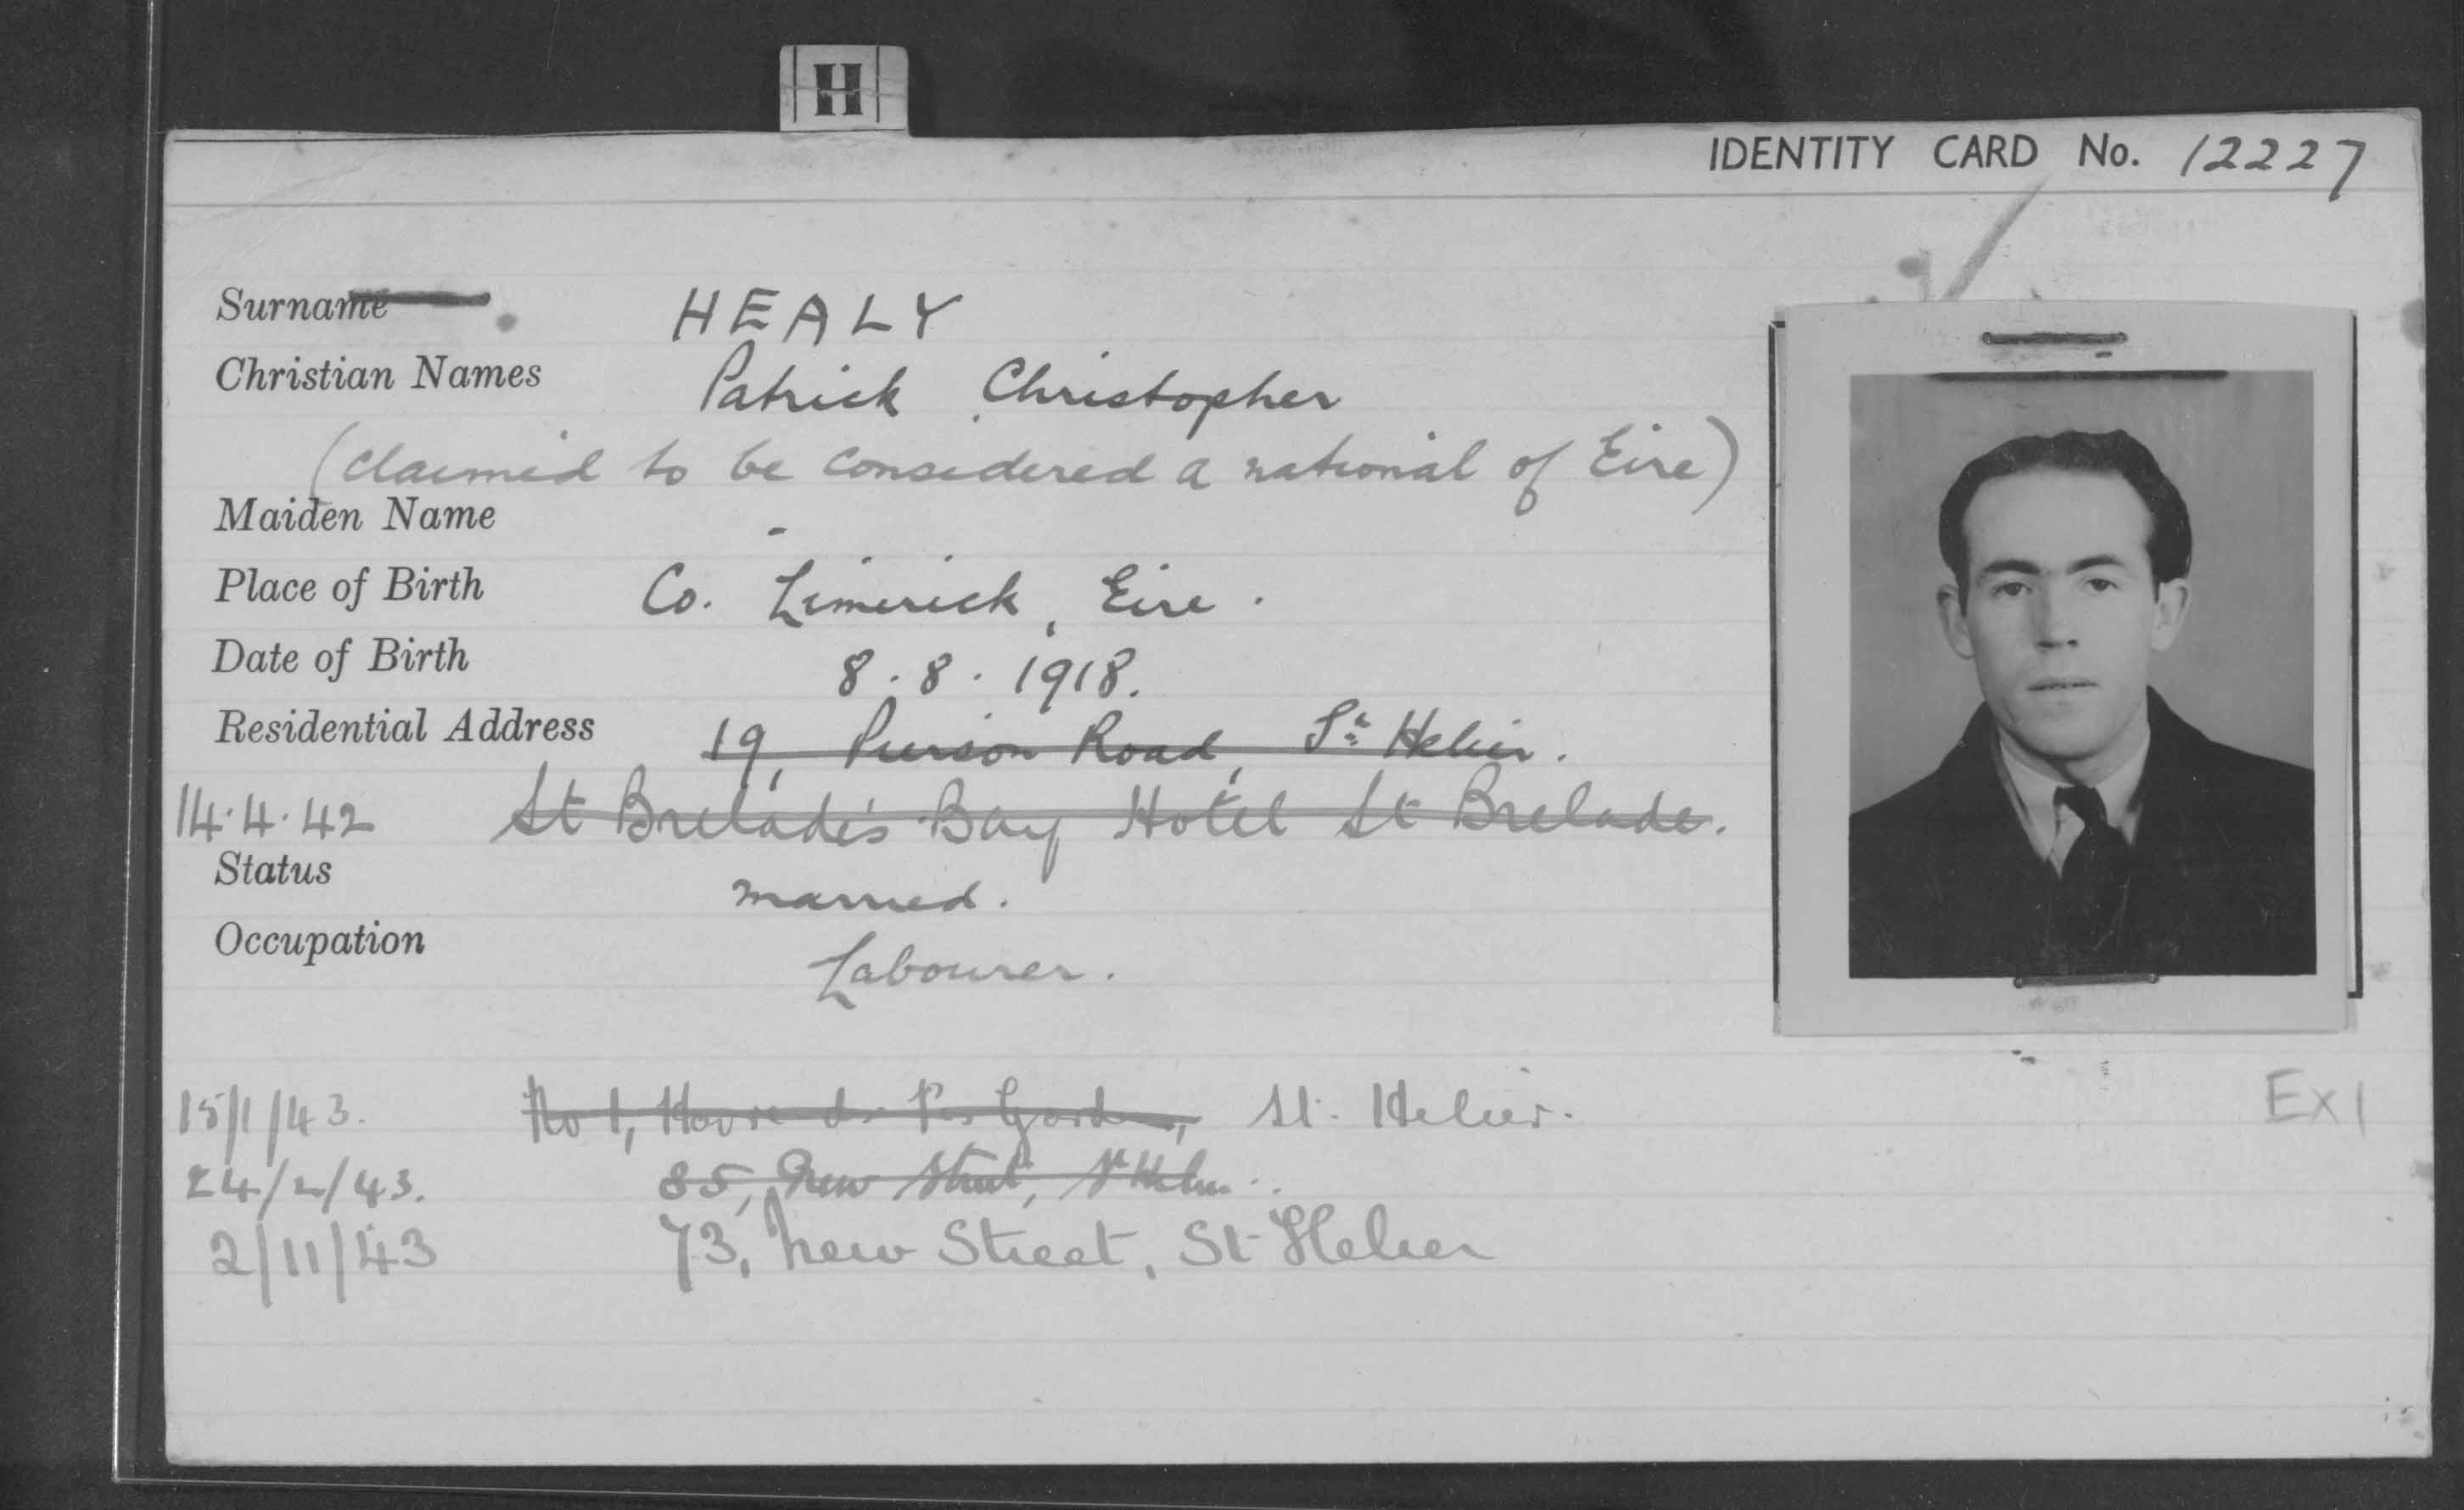 H
IDENTITY CARD No. 12227
Surname HEALY
Christian Names Patrick Christopher
(claimed to be considered a national of Eire)
Maiden Name -
Place of Birth Co. Limerick, Eire.
Date of Birth 8.8.1918.
Residential Address 19, Pierson Road, St Helier.
14.4.42 St Brelade's Bay Hotel St Brelade.
Status married.
Occupation Labourer.
15/1/43. No 1, Havre des Pas Gardens, St. Helier.
Ex1
24/2/43. 85, New Street, St Helier.
2/11/43 73, New Street, St Helier